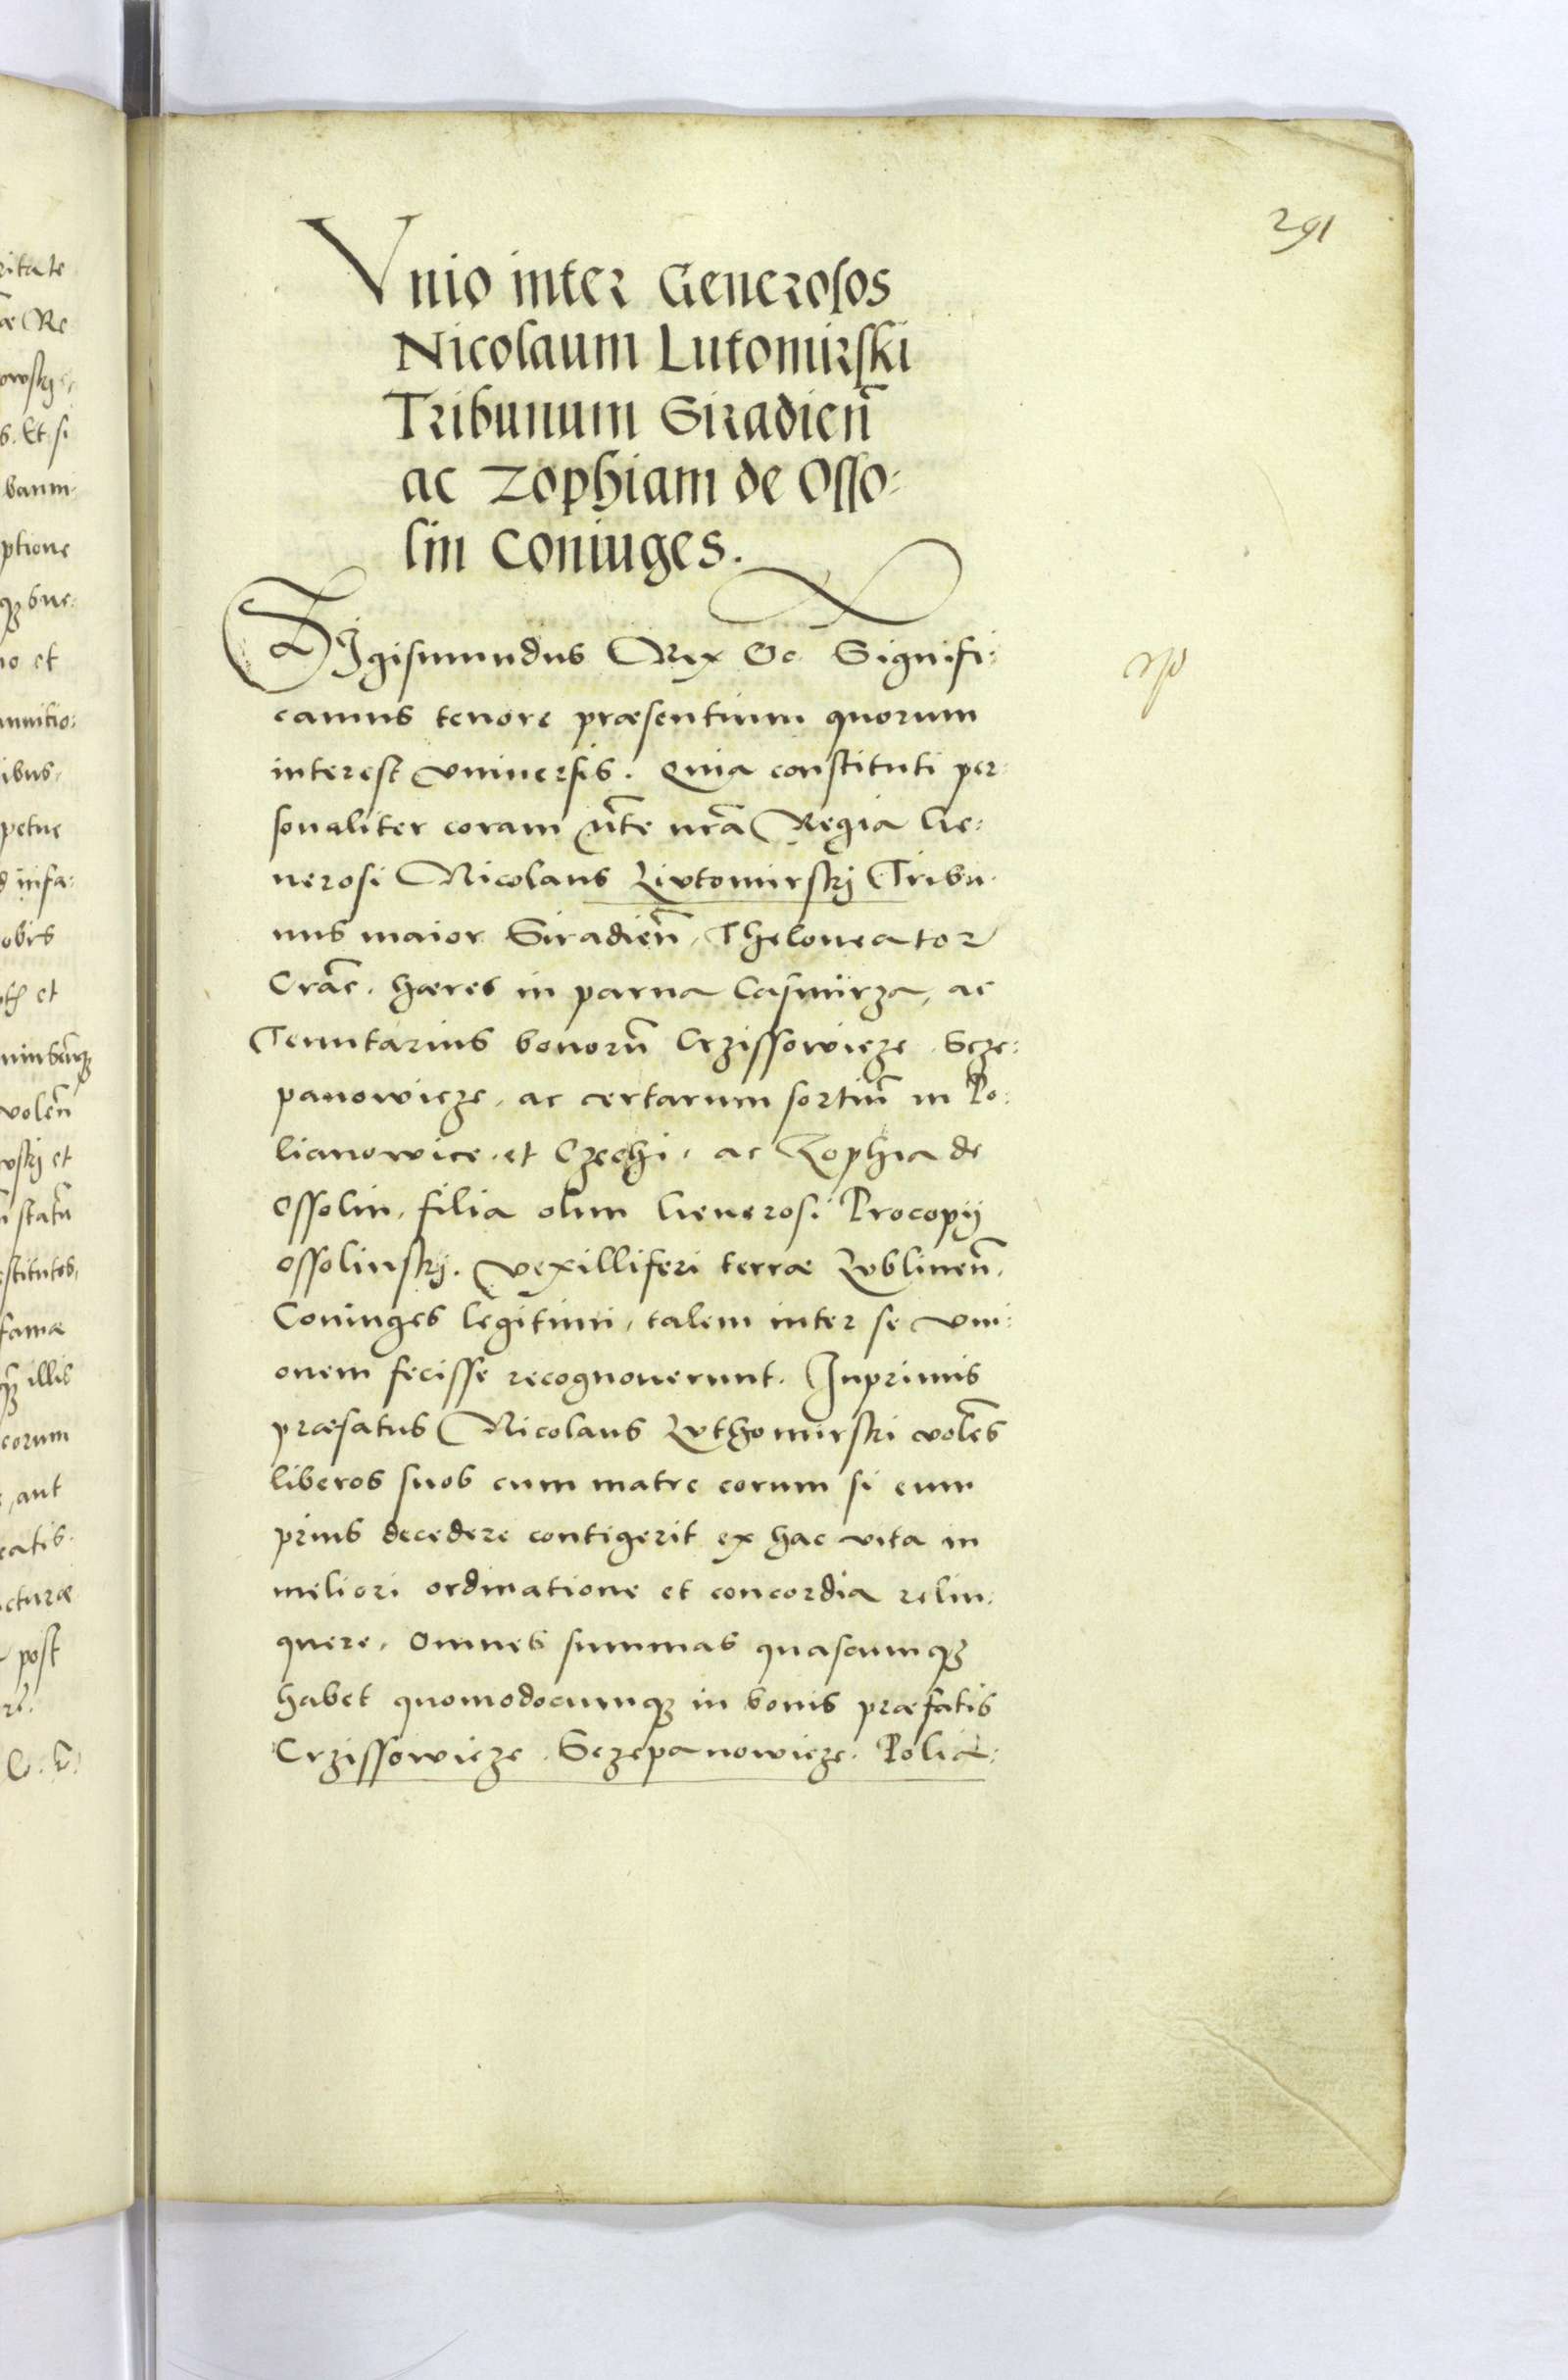 291
Vnio inter Generosos
Nicolaum Lutomirski
Tribunum Siradien̄
ac Zophiam de Osso:
lin Coniuges.
SIgismundus Rex &c. Signifi:
camus tenore præsentium quorum
interest vniuersis. Quia constituti per:
sonaliter coram M̄te nr̄a Regia Ge:
nerosi Nicolaus Lvtomirskij Tribu:
nus maior Siradien̄, Theloneator
Crac̄. hæres in parua Casmirza, ac
Tenutarius bonorū Crzissowicze, Scze:
panowicze, ac certarum sortiū in Po:
lianowice, et Czechi, ac Zophia de
Ossolin, filia olim Generosi Procopij
Ossolinskij. Vexilliferi terræ Lvblinen̄.
Coniuges legitimi, talem inter se vni:
onem fecisse recognouerunt. Inprimis
præfatus Nicolaus Lvthomirski volēs
liberos suos cum matre eorum si eum
prius decedere contigerit ex hac vita in
meliori ordinatione et concordia relin:
quere, omnes summas quascumqꝫ
habet quomodocumqꝫ in bonis præfatis
Crzissowicze, Sczepanowicze, Polia:
ritate
æ Re
owskij
s. Et si
ptione
no et
ibus,
petue
obis
et
volen̄
wskij et
stitutos,
famæ
illis
eorum
aut
cturæ
post